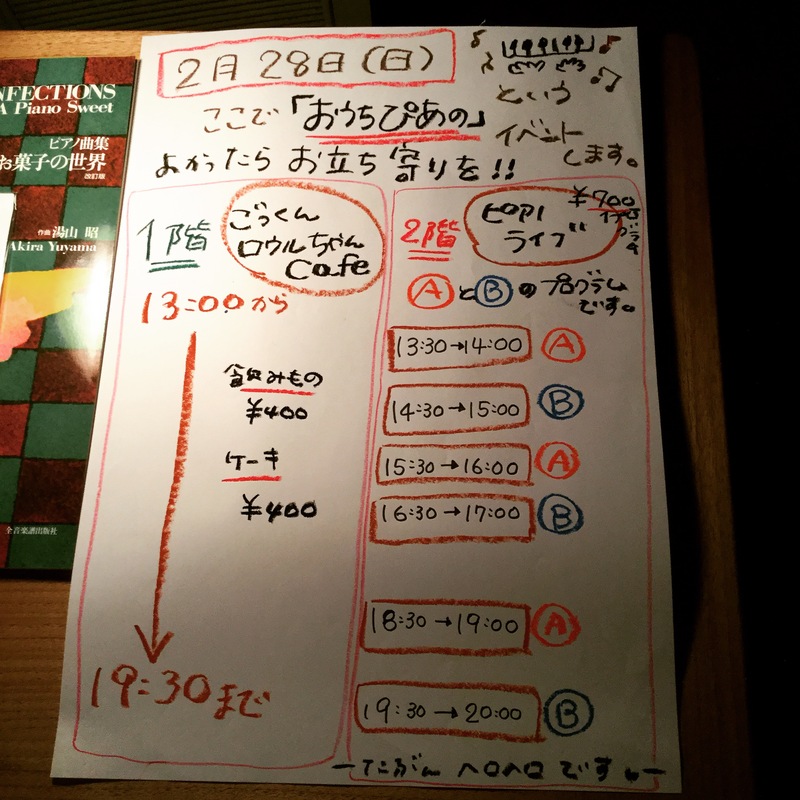 NFECTIONS
A Piano Sweet
ピアノ曲集
お菓子の世界
改訂版
作曲 湯山 昭
Akira Yuyama
全音楽譜出版社
2月 28日(日)
ここで「おうちぴあの」
という
イベント
します。
よかったら お立ち寄りを!!
1階
ごっくん
ロウルちゃん
Cafe
13:00から
飲みもの
¥400
ケーキ
¥400
19:30まで
2階
ピアノ
ライブ
¥700
AとBのプログラム
です。
13:30→14:00 A
14:30→15:00 B
15:30→16:00 A
16:30→17:00 B
18:30→19:00 A
19:30→20:00 B
ーたぶん ヘロヘロ ですー